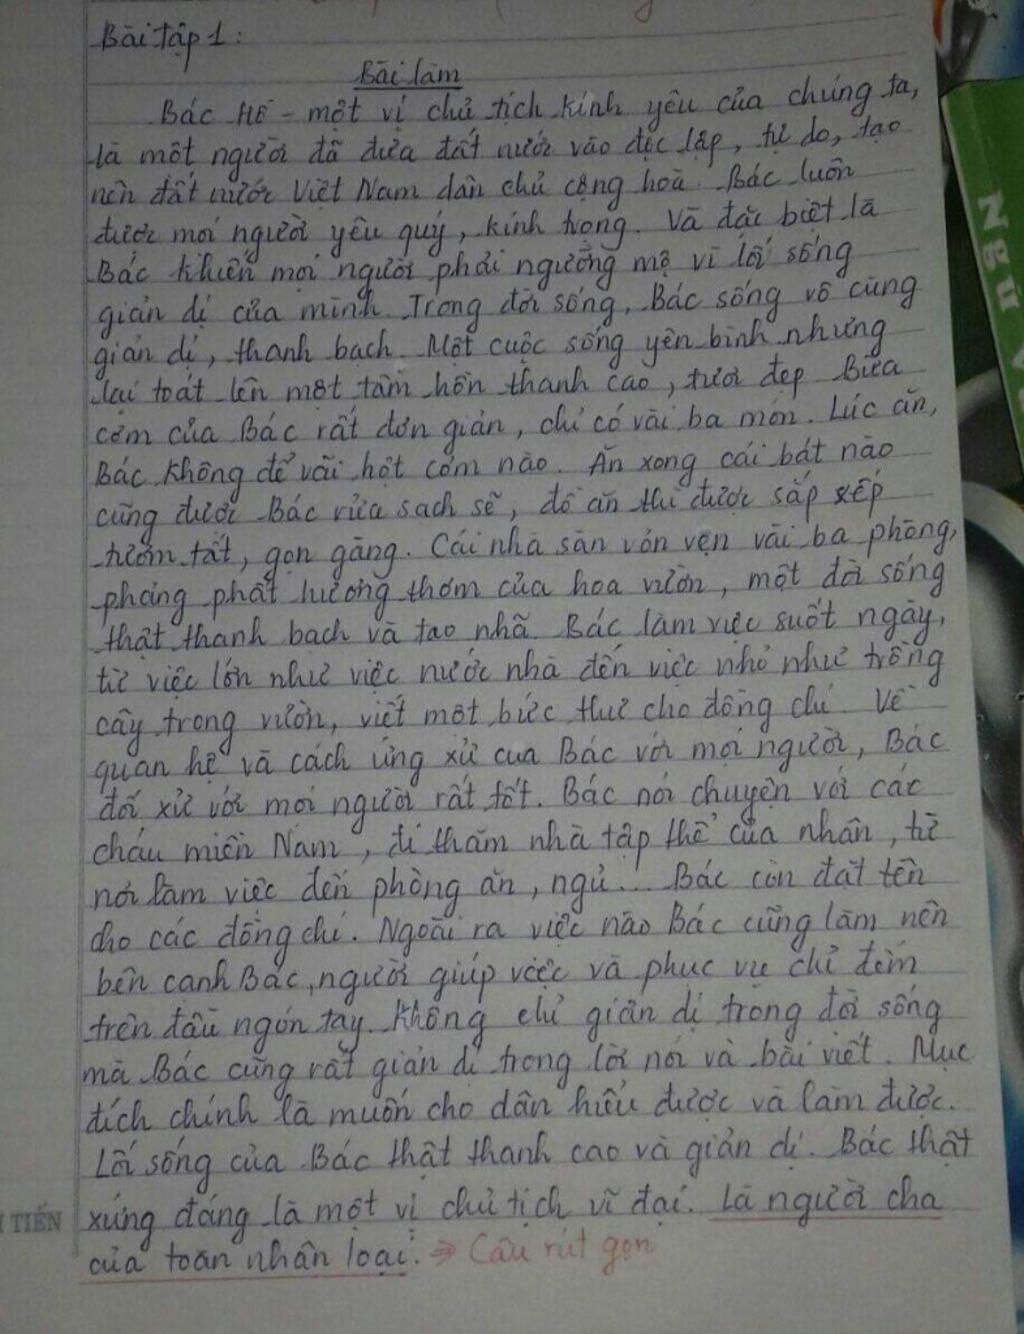 Bài tập 1:
Bài làm
Bác Hồ - một vị chủ tịch kính yêu của chúng ta,
là một người đã đưa đất nước vào độc lập, tự do, tạo
nên đất nước Việt Nam dân chủ cộng hoà. Bác luôn
được mọi người yêu quý, kính trọng. Và đặc biệt là
Bác khiến mọi người phải ngưỡng mộ vì lối sống
giản dị của mình. Trong đời sống, Bác sống vô cùng
giản dị, thanh bạch. Một cuộc sống yên bình nhưng
lại toát lên một tâm hồn thanh cao, tươi đẹp. Bữa
cơm của Bác rất đơn giản, chỉ có vài ba món. Lúc ăn,
Bác không để vãi hột cơm nào. Ăn xong cái bát nào
cũng được Bác rửa sạch sẽ, đồ ăn thì được sắp xếp
tươm tất, gọn gàng. Cái nhà sàn vỏn vẹn vài ba phòng,
phảng phất hương thơm của hoa vườn, một đời sống
thật thanh bạch và tao nhã. Bác làm việc suốt ngày,
từ việc lớn như việc nước nhà đến việc nhỏ như trồng
cây trong vườn, viết một bức thư cho đồng chí. Về
quan hệ và cách ứng xử của Bác với mọi người, Bác
đối xử với mọi người rất tốt. Bác nói chuyện với các
cháu miền Nam, đi thăm nhà tập thể của nhân, từ
nơi làm việc đến phòng ăn, ngủ... Bác còn đặt tên
cho các đồng chí. Ngoài ra việc nào Bác cũng làm nên
bên cạnh Bác, người giúp việc và phục vụ chỉ đếm
trên đầu ngón tay. Không chỉ giản dị trong đời sống
mà Bác cũng rất giản dị trong lời nói và bài viết. Mục
đích chính là muốn cho dân hiểu được và làm được.
Lối sống của Bác thật thanh cao và giản dị. Bác thật
xứng đáng là một vị chủ tịch vĩ đại. Là người cha
của toàn nhân loại. => Câu rút gọn
TIẾN
Ngữ